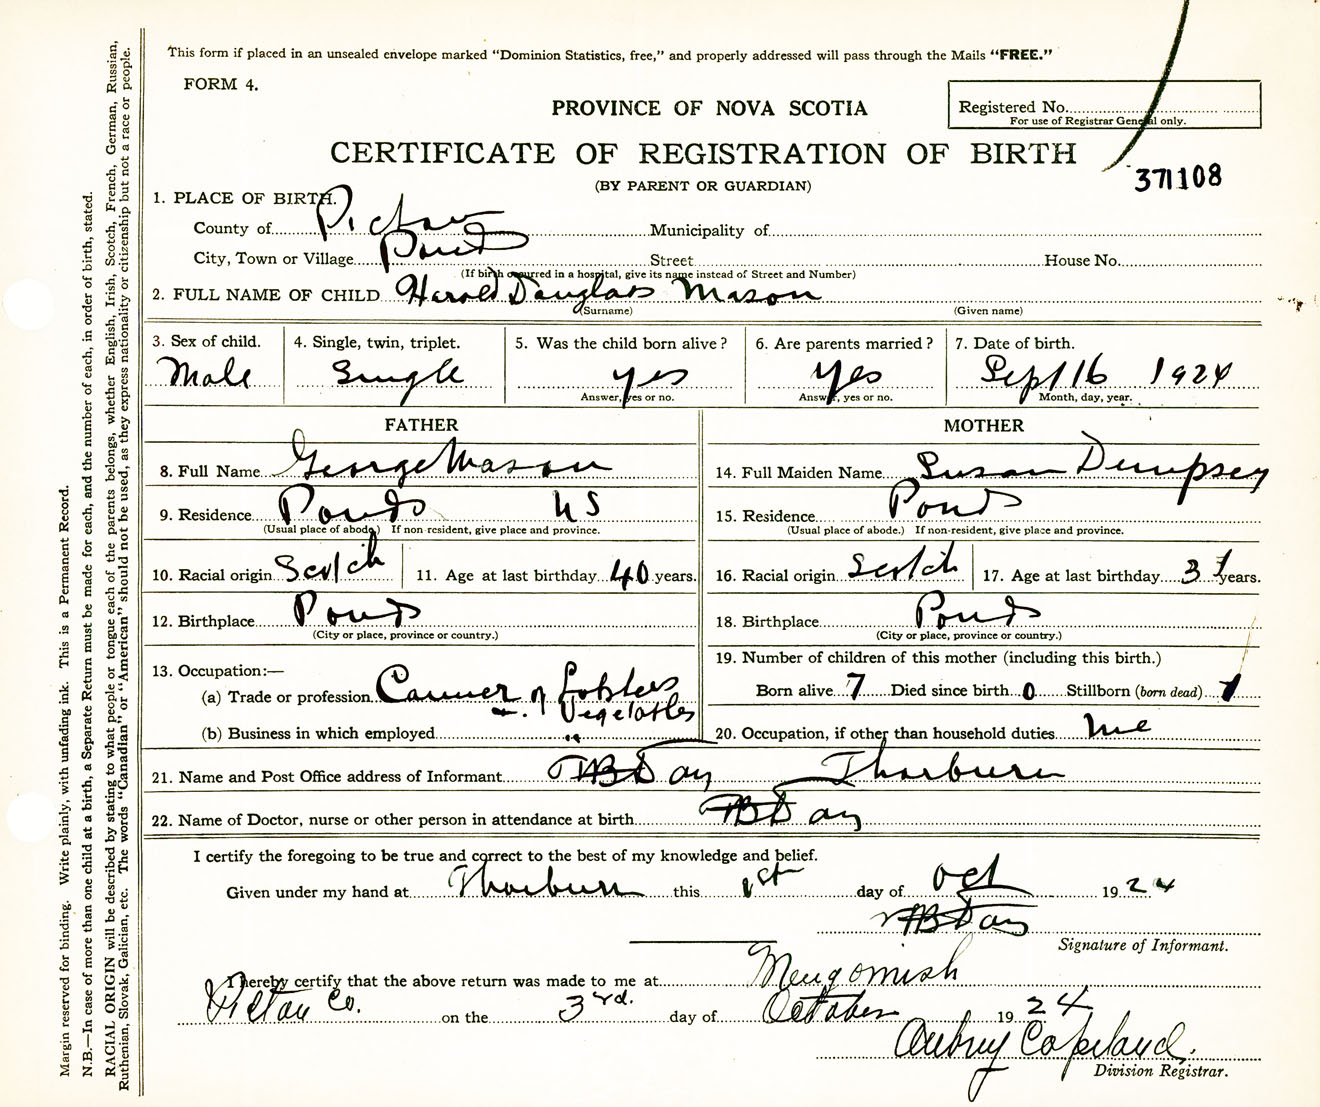 This form if placed in an unsealed envelope marked "Dominion Statistics, free," and properly addressed will pass through the Mails "FREE."
FORM 4.
PROVINCE OF NOVA SCOTIA
Registered No.
For use of Registrar General only.
CERTIFICATE OF REGISTRATION OF BIRTH
371108
(BY PARENT OR GUARDIAN)
1. PLACE OF BIRTH.
County of Pictou Municipality of
City, Town or Village Ponds Street House No.
(If birth occurred in a hospital, give its name instead of Street and Number)
2. FULL NAME OF CHILD Harold Douglas Mason
(Surname) (Given name)
3. Sex of child. 4. Single, twin, triplet. 5. Was the child born alive? 6. Are parents married? 7. Date of birth.
Male Single yes yes Sept 16 1924
Answer, yes or no. Answer, yes or no. Month, day, year.
FATHER MOTHER
8. Full Name George Mason 14. Full Maiden Name Susan Dempsey
9. Residence Ponds NS 15. Residence Ponds
(Usual place of abode.) If non-resident, give place and province. (Usual place of abode.) If non-resident, give place and province.
10. Racial origin Scotch 11. Age at last birthday 40 years. 16. Racial origin Scotch 17. Age at last birthday 37 years.
12. Birthplace Ponds 18. Birthplace Ponds
(City or place, province or country.) (City or place, province or country.)
13. Occupation:— 19. Number of children of this mother (including this birth.)
(a) Trade or profession Canner of Lobsters Born alive 7 Died since birth 0 Stillborn (born dead) 1
Vegetables
(b) Business in which employed " 20. Occupation, if other than household duties
21. Name and Post Office address of Informant Day Thorburn
22. Name of Doctor, nurse or other person in attendance at birth Day
I certify the foregoing to be true and correct to the best of my knowledge and belief.
Given under my hand at Thorburn this 1st day of Oct 1924
Day
Signature of Informant.
I hereby certify that the above return was made to me at Merigomish
Pictou Co. on the 3rd. day of October 1924
Aubrey Copeland.
Division Registrar.
Margin reserved for binding. Write plainly, with unfading ink. This is a Permanent Record.
N.B.—In case of more than one child at a birth, a Separate Return must be made for each, and the number of each, in order of birth, stated.
RACIAL ORIGIN will be described by stating to what people or tongue each of the parents belongs, whether English, Irish, Scotch, French, German, Russian,
Ruthenian, Slovak, Galician, etc. The words "Canadian" or "American" should not be used, as they express nationality or citizenship but not a race or people.